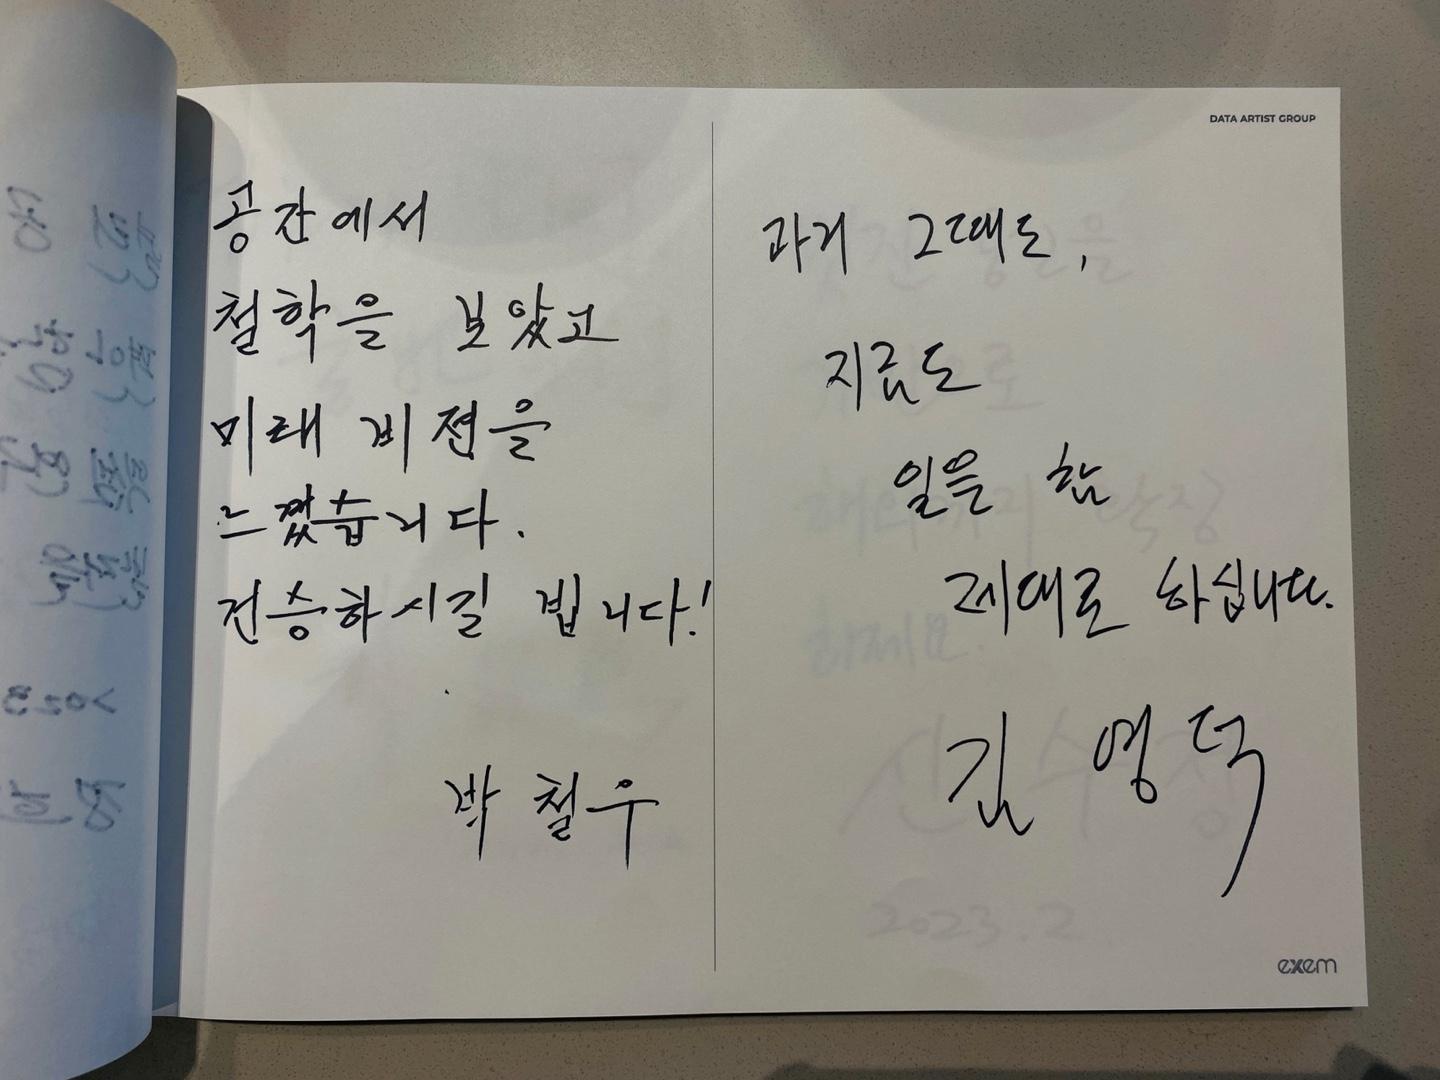 공간에서
철학을 보았고
미래 비젼을
느꼈습니다.
건승하시길 빕니다!
박철우
DATA ARTIST GROUP
과거 그때도,
지금도
일을 참
제대로 하십니다.
김영덕
exem